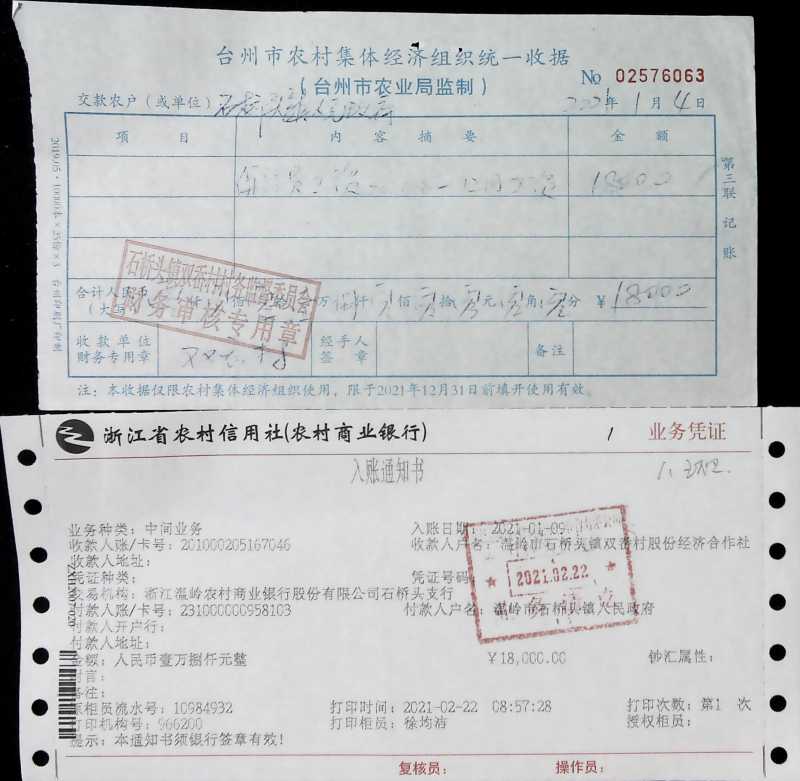 台州市农村集体经济组织统一收据
(台州市农业局监制)
№ 02576063
交款农户（或单位）石桥头镇人民政府 2021年1月4日
项 目 内 容 摘 要 金 额
12月工资 18000
第三联 记账
石桥头镇双岙村村务监督委员会
财务审核专用章
合计人民币
(大写) 佰 拾 万 仟 佰 拾 元 角 分 ￥18000
收款单位
财务专用章
经手人
签章
备注
注：本收据仅限农村集体经济组织使用，限于2021年12月31日前填开使用有效。
浙江省农村信用社(农村商业银行) 业务凭证
入账通知书
业务种类：中间业务 入账日期：2021-01-09
收款人账/卡号：201000205167046 收款人户名：温岭市石桥头镇双岙村股份经济合作社
收款人地址：
凭证种类： 凭证号码：
2021.02.22
交易机构：浙江温岭农村商业银行股份有限公司石桥头支行
付款人账/卡号：231000000958103 付款人户名：温岭市石桥头镇人民政府
付款人开户行：
付款人地址：
金额：人民币壹万捌仟元整 ￥18,000.00 钞汇属性：
附言：
备注：
原柜员流水号：10984932 打印时间：2021-02-22 08:57:28 打印次数：第1 次
打印机构号：966200 打印柜员：徐均洁 授权柜员：
提示：本通知书须银行签章有效！
复核员： 操作员：